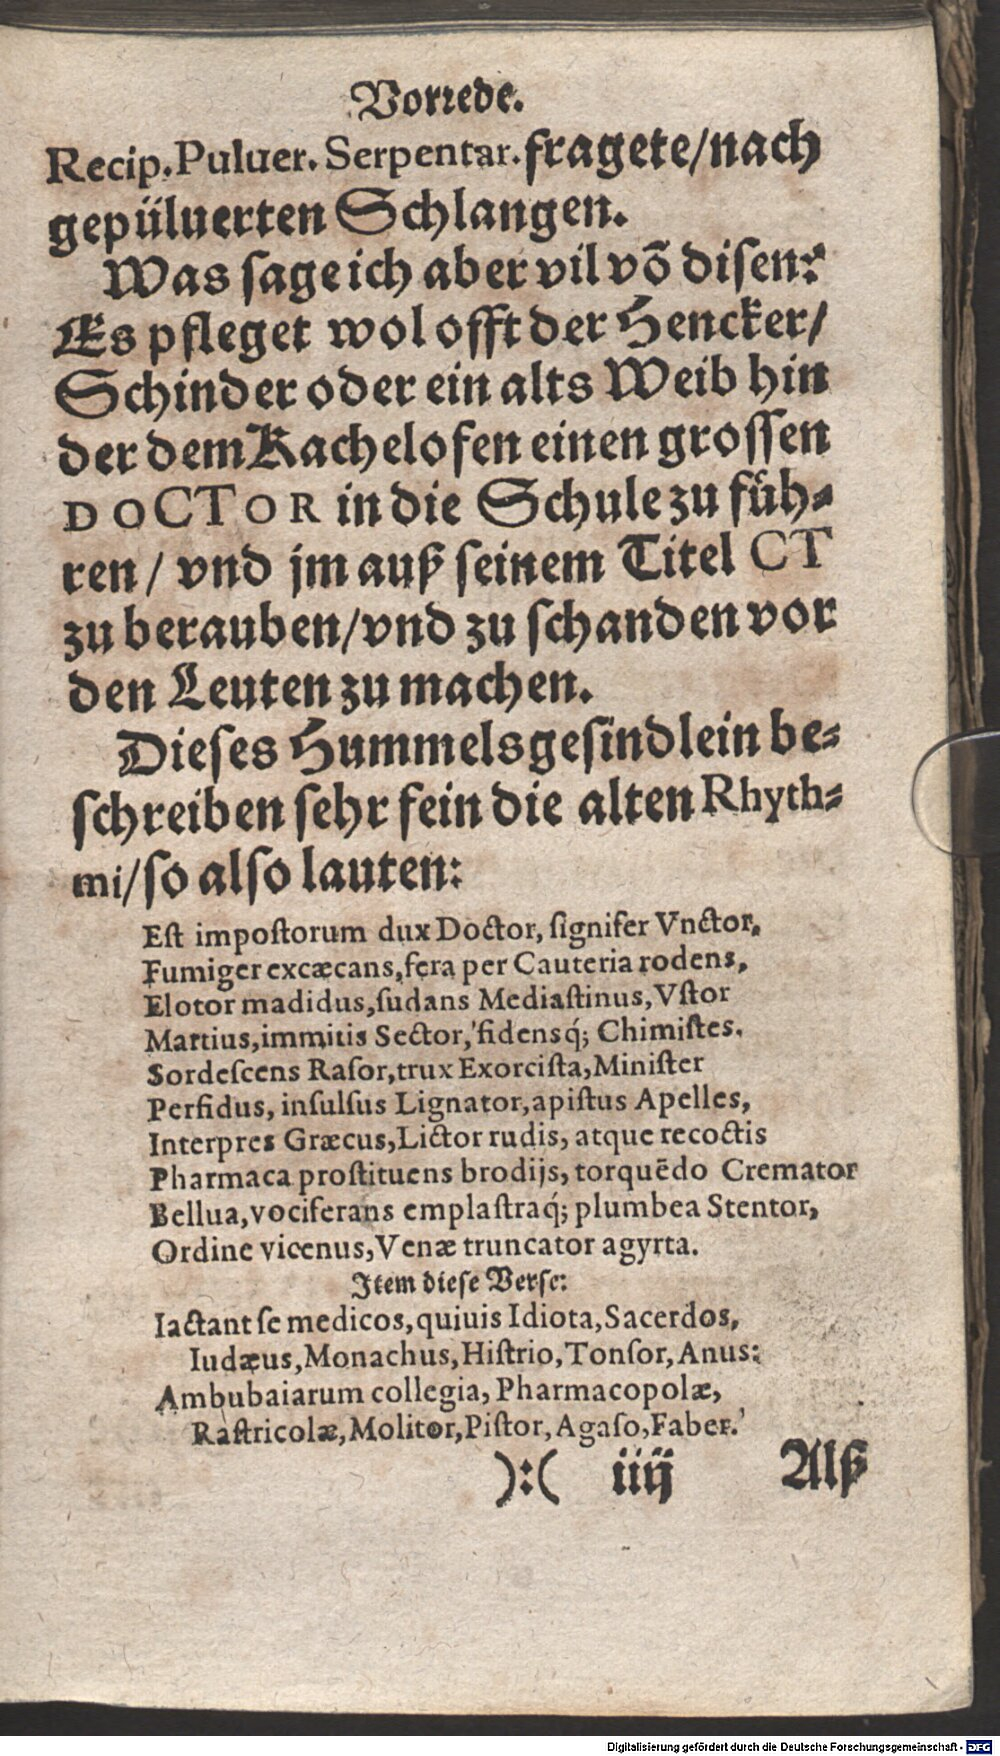 Vorrede.
Recip. Puluer. Serpentar. fragete/nach
gepüluerten Schlangen.
Was sage ich aber vil võ disen?
Es pfleget wol offt der Hencker/
Schinder oder ein alts Weib hin
der dem Kachelofen einen grossen
DOCTOR in die Schule zu füh⸗
ren/ vnd jm auß seinem Titel CT
zu berauben/vnd zu schanden vor
den Leuten zu machen.
Dieses Hummelsgesindlein be⸗
schreiben sehr fein die alten Rhyth⸗
mi/so also lauten:
Est impostorum dux Doctor, signifer Vnctor,
Fumiger excæcans, fera per Cauteria rodens,
Elotor madidus, sudans Mediastinus, Vstor
Martius, immitis Sector, fidensq́; Chimistes.
Sordescens Rasor, trux Exorcista, Minister
Perfidus, insulsus Lignator, apistus Apelles,
Interpres Græcus, Lictor rudis, atque recoctis
Pharmaca prostituens brodijs, torquẽdo Cremator
Bellua, vociferans emplastraq́; plumbea Stentor,
Ordine vicenus, Venæ truncator agyrta.
Item diese Verse:
Iactant se medicos, quiuis Idiota, Sacerdos,
Iudæus, Monachus, Histrio, Tonsor, Anus:
Ambubaiarum collegia, Pharmacopolæ,
Rastricolæ, Molitor, Pistor, Agaso, Faber.
):( iiij Alß
Digitalisierung gefördert durch die Deutsche Forschungsgemeinschaft - DFG